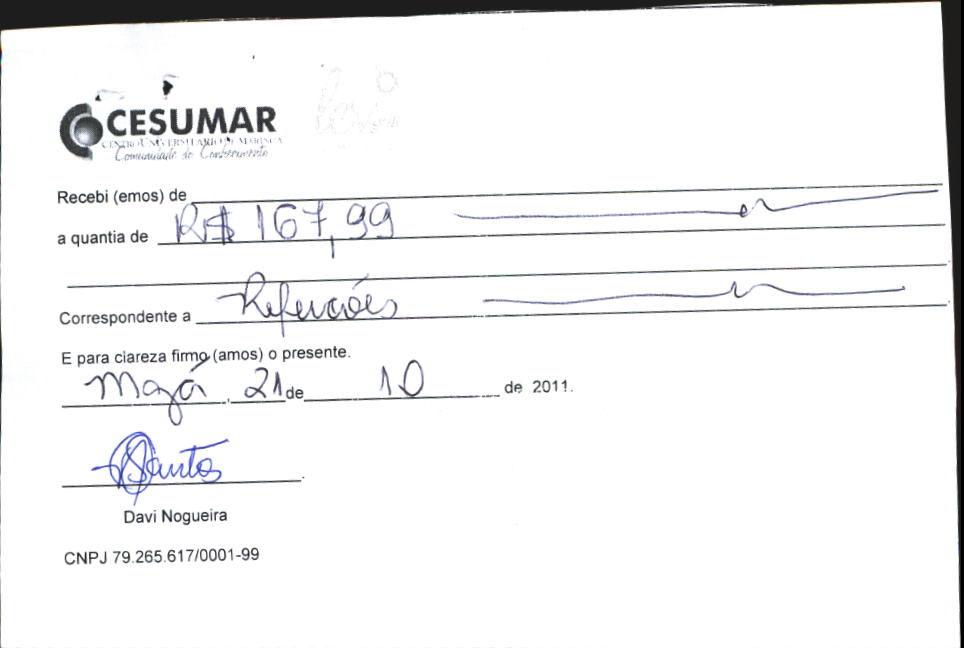 CESUMAR
CENTRO UNIVERSITÁRIO DE MARINGÁ
Comunidade do Conhecimento
Recebi (emos) de
a quantia de R$ 167,99
Correspondente a Refeições
E para clareza firmo (amos) o presente.
Mgá, 21 de 10 de 2011.
Santos
Davi Nogueira
CNPJ 79.265.617/0001-99